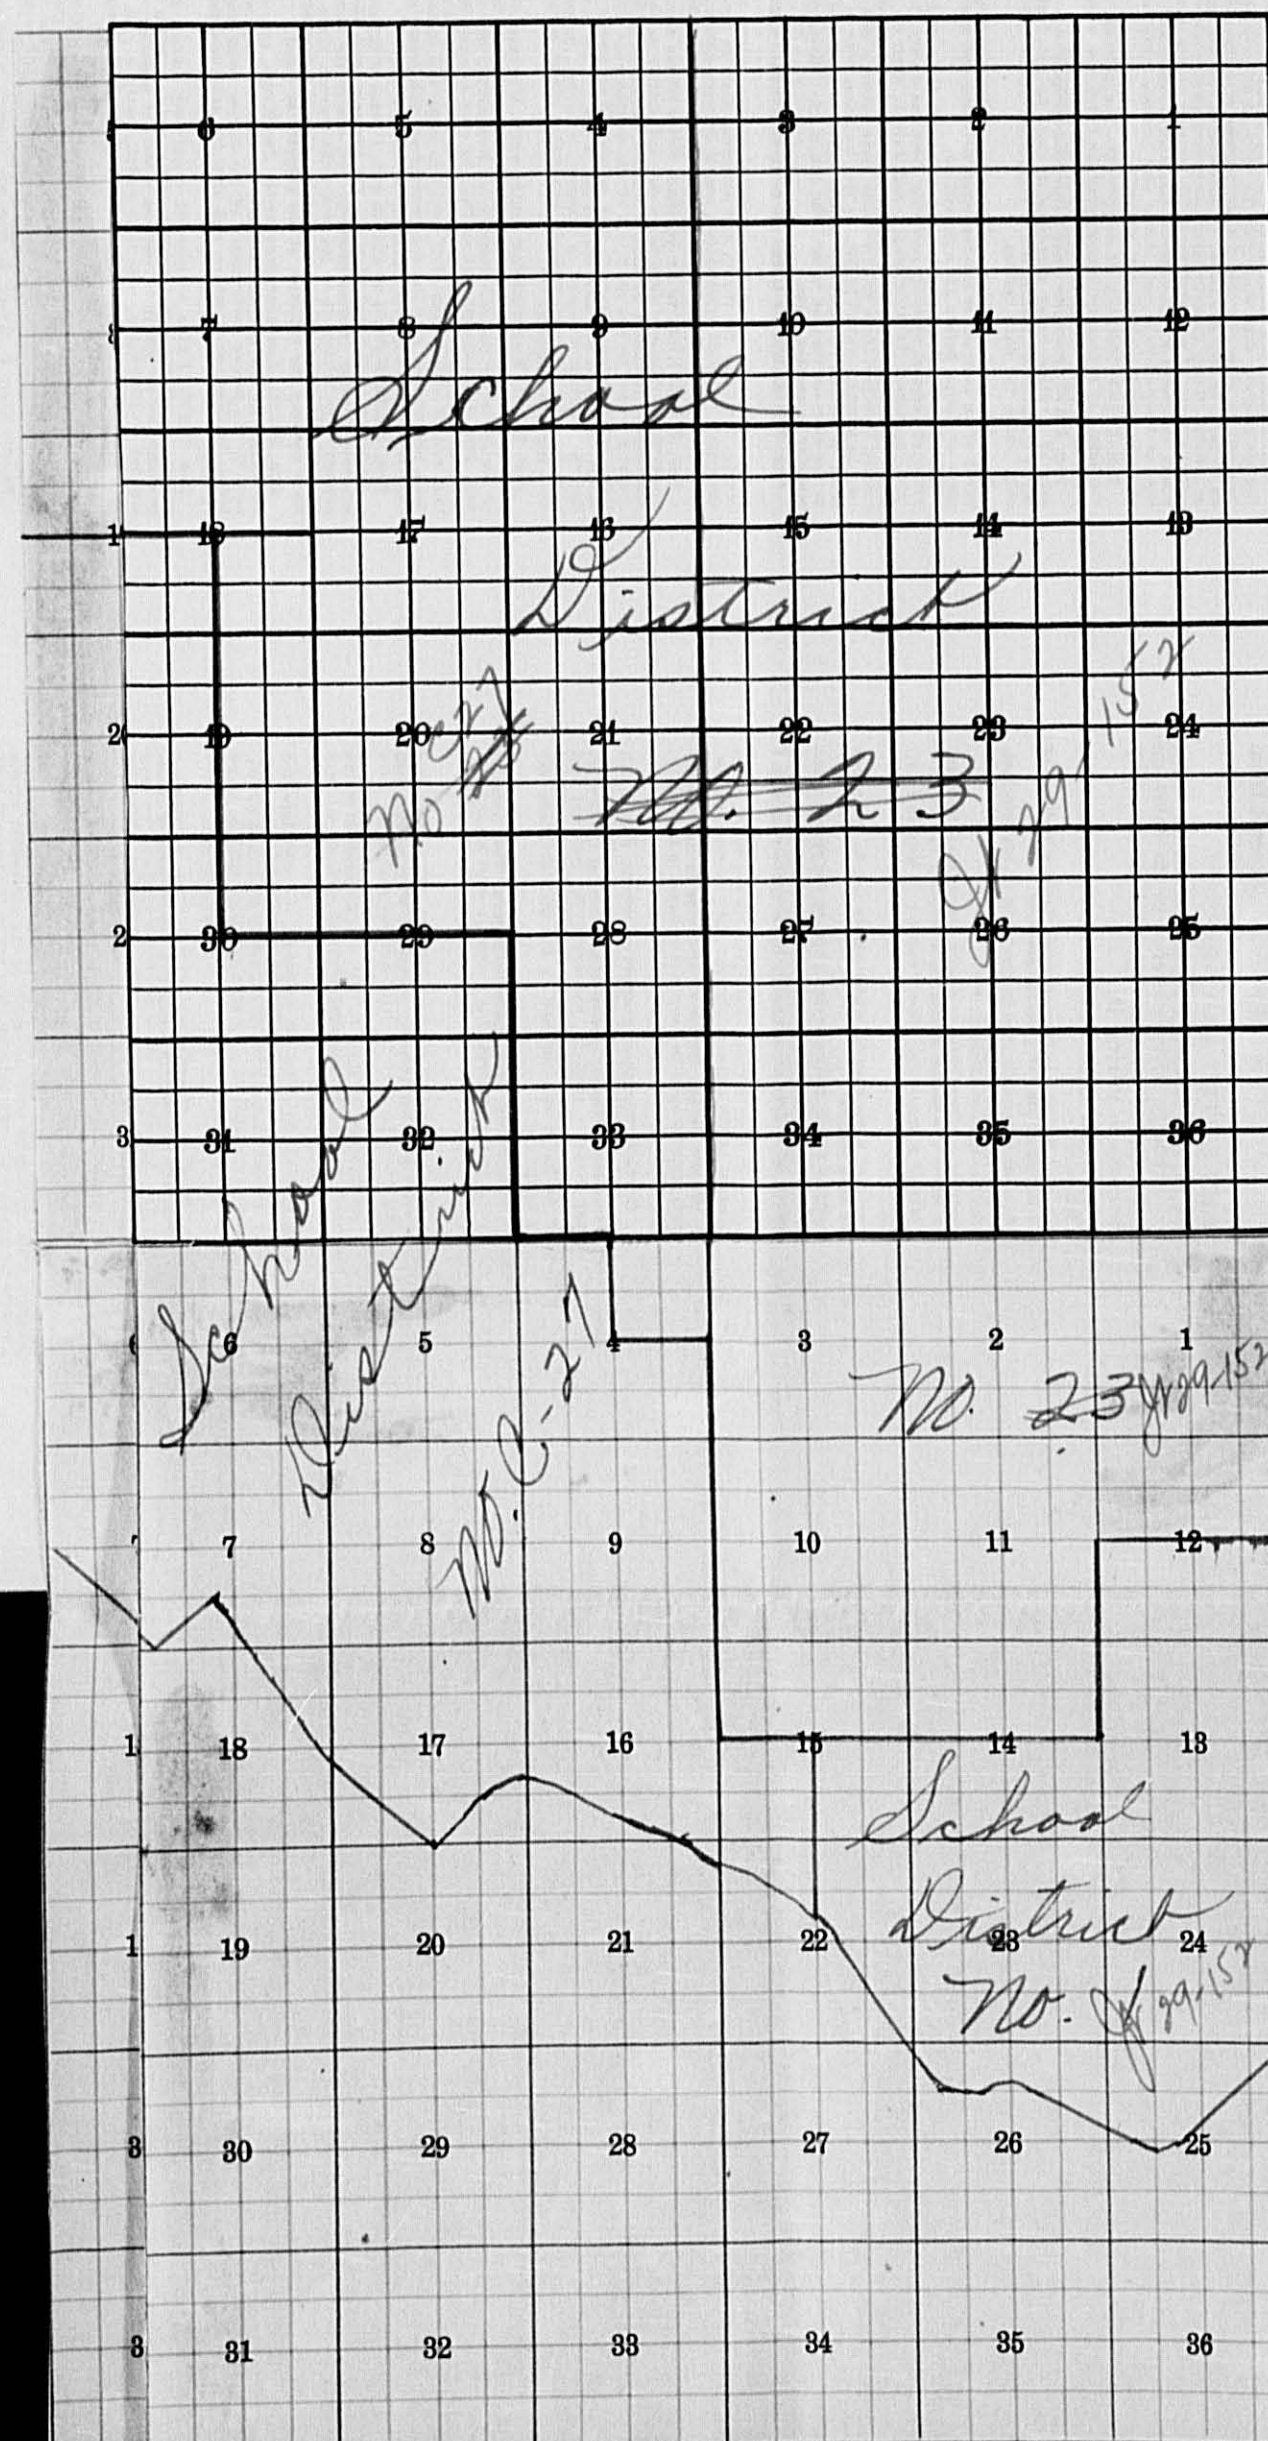 6 5 4 3 2 1
7 8 9 10 11 12
School
18 17 13 15 14 13
District
19 20 21 22 23 24
No C27
No. 23
Jt 29-152
30 29 28 27 26 25
31 32 33 34 35 36
School
District
No. C-27
6 5 4 3 2 1
No. 23 Jt 29-152
7 8 9 10 11 12
18 17 16 15 14 13
School
District
19 20 21 22 23 24
No. Jt 29-152
30 29 28 27 26 25
31 32 33 34 35 36